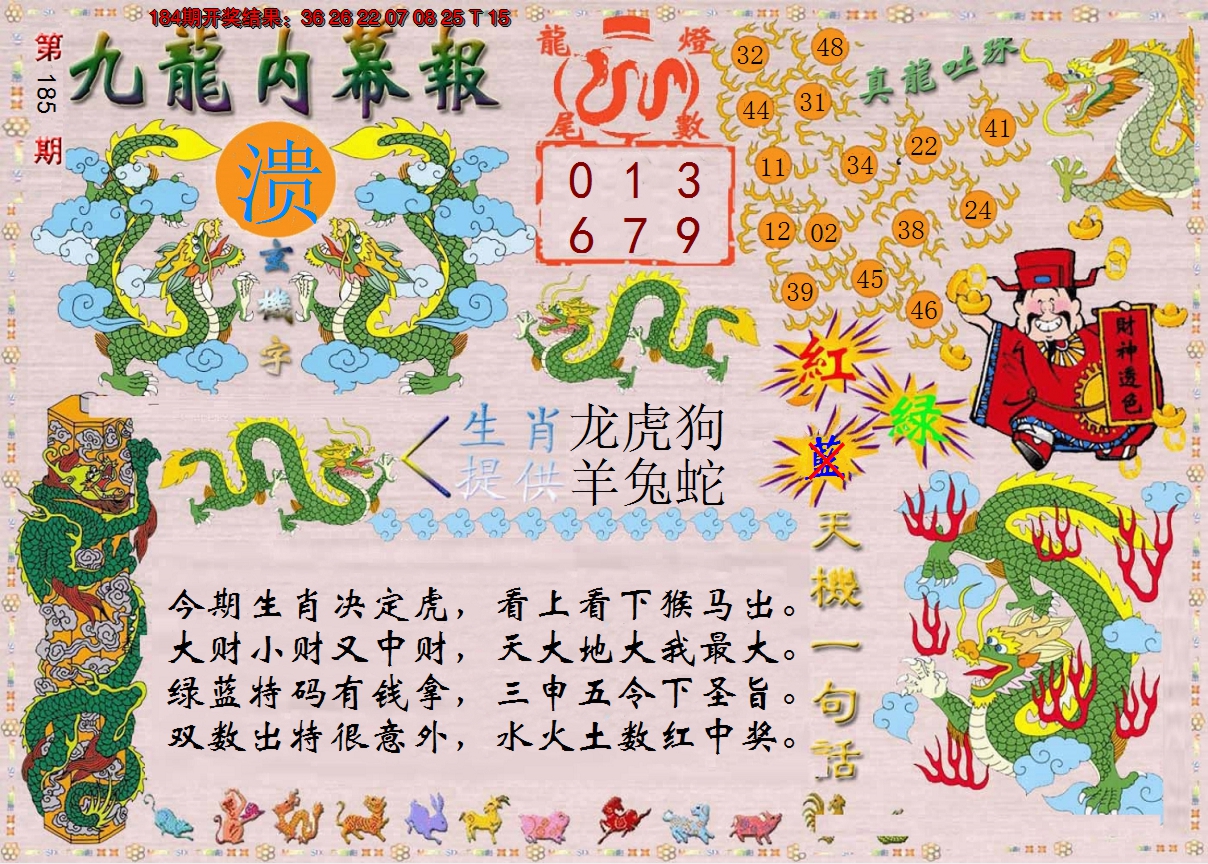 184期开奖结果：36 26 22 07 08 25 T 15
第185期
九龍内幕報
龍燈
尾數
0 1 3
6 7 9
真龍吐珠
32 48
44 31
11 34 22 41
12 02 38 24
39 45 46
溃
玄機字
紅
绿
藍
財神透色
生肖 龙虎狗
提供 羊兔蛇
天機一句話
今期生肖决定虎，看上看下猴马出。
大财小财又中财，天大地大我最大。
绿蓝特码有钱拿，三申五令下圣旨。
双数出特很意外，水火土数红中奖。